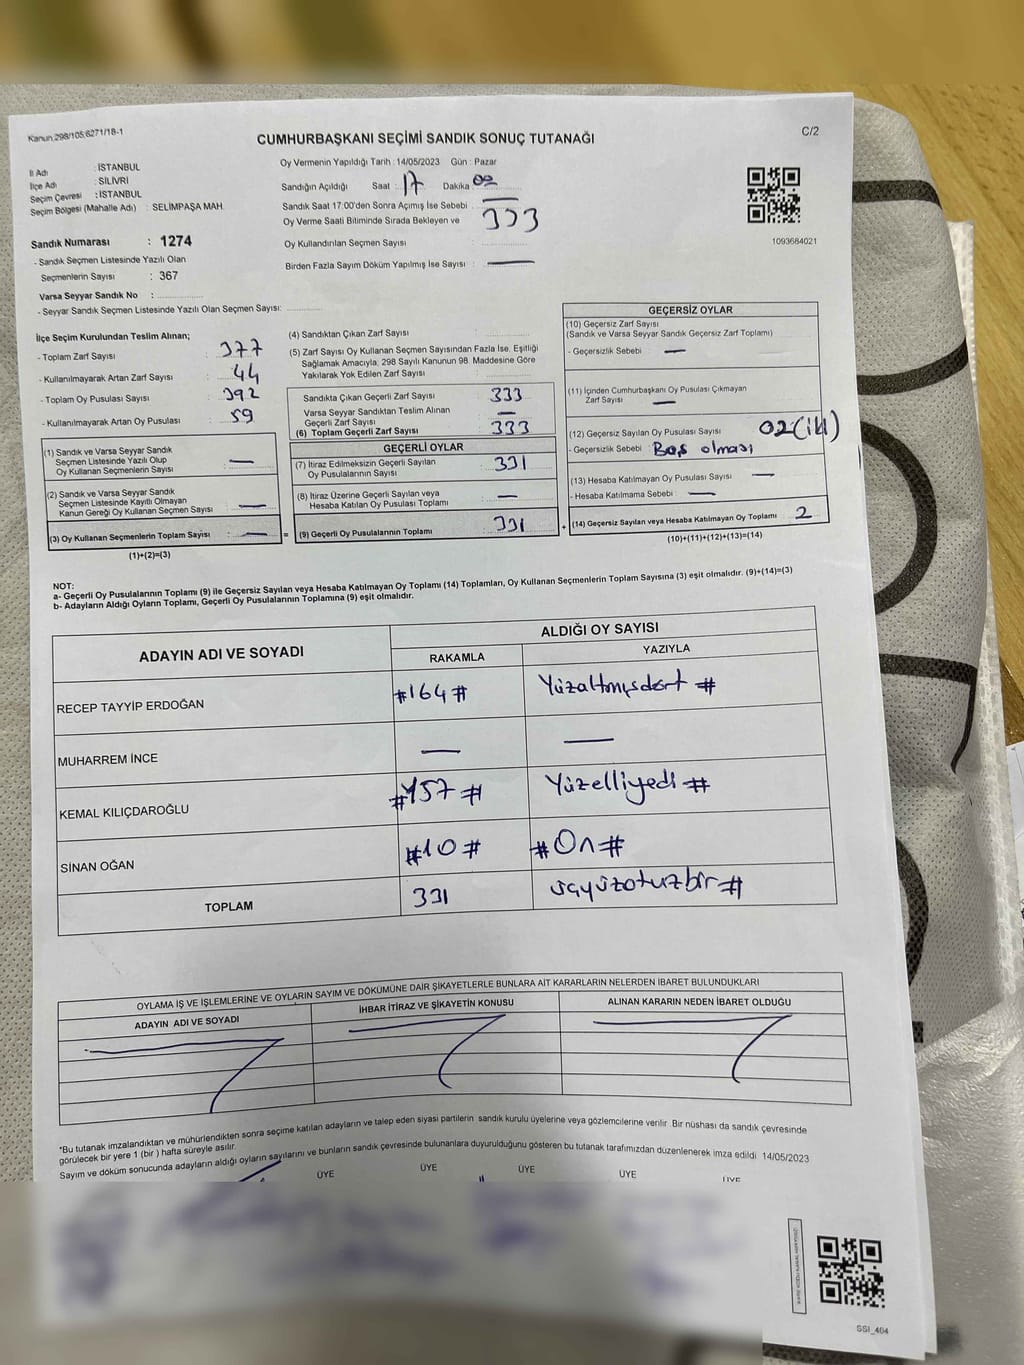 Kanun 298/105;6271/18-1
C/2
CUMHURBAŞKANI SEÇİMİ SANDIK SONUÇ TUTANAĞI
İl Adı : İSTANBUL
İlçe Adı : SİLİVRİ
Seçim Çevresi : İSTANBUL
Seçim Bölgesi (Mahalle Adı) : SELİMPAŞA MAH.
Sandık Numarası : 1274
- Sandık Seçmen Listesinde Yazılı Olan
Seçmenlerin Sayısı : 367
Varsa Seyyar Sandık No :
- Seyyar Sandık Seçmen Listesinde Yazılı Olan Seçmen Sayısı:
Oy Vermenin Yapıldığı Tarih : 14/05/2023 Gün : Pazar
Sandığın Açıldığı Saat : 17 Dakika 00
Sandık Saat 17:00'den Sonra Açımış İse Sebebi : —
Oy Verme Saati Bitiminde Sırada Bekleyen ve 333
Oy Kullandırılan Seçmen Sayısı :
Birden Fazla Sayım Döküm Yapılmış İse Sayısı : —
1093684021
İlçe Seçim Kurulundan Teslim Alınan;
- Toplam Zarf Sayısı : 377
- Kullanılmayarak Artan Zarf Sayısı : 44
- Toplam Oy Pusulası Sayısı : 392
- Kullanılmayarak Artan Oy Pusulası : 59
(1) Sandık ve Varsa Seyyar Sandık
Seçmen Listesinde Yazılı Olup
Oy Kullanan Seçmenlerin Sayısı : —
(2) Sandık ve Varsa Seyyar Sandık
Seçmen Listesinde Kayıtlı Olmayan
Kanun Gereği Oy Kullanan Seçmen Sayısı : —
(3) Oy Kullanan Seçmenlerin Toplam Sayısı : — =
(1)+(2)=(3)
(4) Sandıktan Çıkan Zarf Sayısı :
(5) Zarf Sayısı Oy Kullanan Seçmen Sayısından Fazla İse, Eşitliği
Sağlamak Amacıyla; 298 Sayılı Kanunun 98. Maddesine Göre
Yakılarak Yok Edilen Zarf Sayısı :
Sandıkta Çıkan Geçerli Zarf Sayısı : 333
Varsa Seyyar Sandıktan Teslim Alınan
Geçerli Zarf Sayısı : —
(6) Toplam Geçerli Zarf Sayısı : 333
GEÇERLİ OYLAR
(7) İtiraz Edilmeksizin Geçerli Sayılan
Oy Pusulalarının Sayısı : 331
(8) İtiraz Üzerine Geçerli Sayılan veya
Hesaba Katılan Oy Pusulası Toplamı : —
(9) Geçerli Oy Pusulalarının Toplamı : 331 +
GEÇERSİZ OYLAR
(10) Geçersiz Zarf Sayısı
(Sandık ve Varsa Seyyar Sandık Geçersiz Zarf Toplamı)
- Geçersizlik Sebebi : —
(11) İçinden Cumhurbaşkanı Oy Pusulası Çıkmayan
Zarf Sayısı : —
(12) Geçersiz Sayılan Oy Pusulası Sayısı : 02 (iki)
- Geçersizlik Sebebi : Boş olması
(13) Hesaba Katılmayan Oy Pusulası Sayısı : —
- Hesaba Katılmama Sebebi : —
(14) Geçersiz Sayılan veya Hesaba Katılmayan Oy Toplamı : 2
(10)+(11)+(12)+(13)=(14)
NOT:
a- Geçerli Oy Pusulalarının Toplamı (9) ile Geçersiz Sayılan veya Hesaba Katılmayan Oy Toplamı (14) Toplamları, Oy Kullanan Seçmenlerin Toplam Sayısına (3) eşit olmalıdır. (9)+(14)=(3)
b- Adayların Aldığı Oyların Toplamı, Geçerli Oy Pusulalarının Toplamına (9) eşit olmalıdır.
ADAYIN ADI VE SOYADI
ALDIĞI OY SAYISI
RAKAMLA YAZIYLA
RECEP TAYYİP ERDOĞAN #164# Yüzaltmışdört #
MUHARREM İNCE — —
KEMAL KILIÇDAROĞLU #157# Yüzelliyedi #
SİNAN OĞAN #10# #On#
TOPLAM 331 üçyüzotuzbir #
OYLAMA İŞ VE İŞLEMLERİNE VE OYLARIN SAYIM VE DÖKÜMÜNE DAİR ŞİKAYETLERLE BUNLARA AİT KARARLARIN NELERDEN İBARET BULUNDUKLARI
ADAYIN ADI VE SOYADI İHBAR İTİRAZ VE ŞİKAYETİN KONUSU ALINAN KARARIN NEDEN İBARET OLDUĞU
*Bu tutanak imzalandıktan ve mühürlendikten sonra seçime katılan adayların ve talep eden siyasi partilerin sandık kurulu üyelerine veya gözlemcilerine verilir. Bir nüshası da sandık çevresinde
görülecek bir yere 1 (bir) hafta süreyle asılır.
Sayım ve döküm sonucunda adayların aldığı oyların sayılarını ve bunların sandık çevresinde bulunanlara duyurulduğunu gösteren bu tutanak tarafımızdan düzenlenerek imza edildi 14/05/2023
ÜYE ÜYE ÜYE ÜYE ÜYE
SSI_404